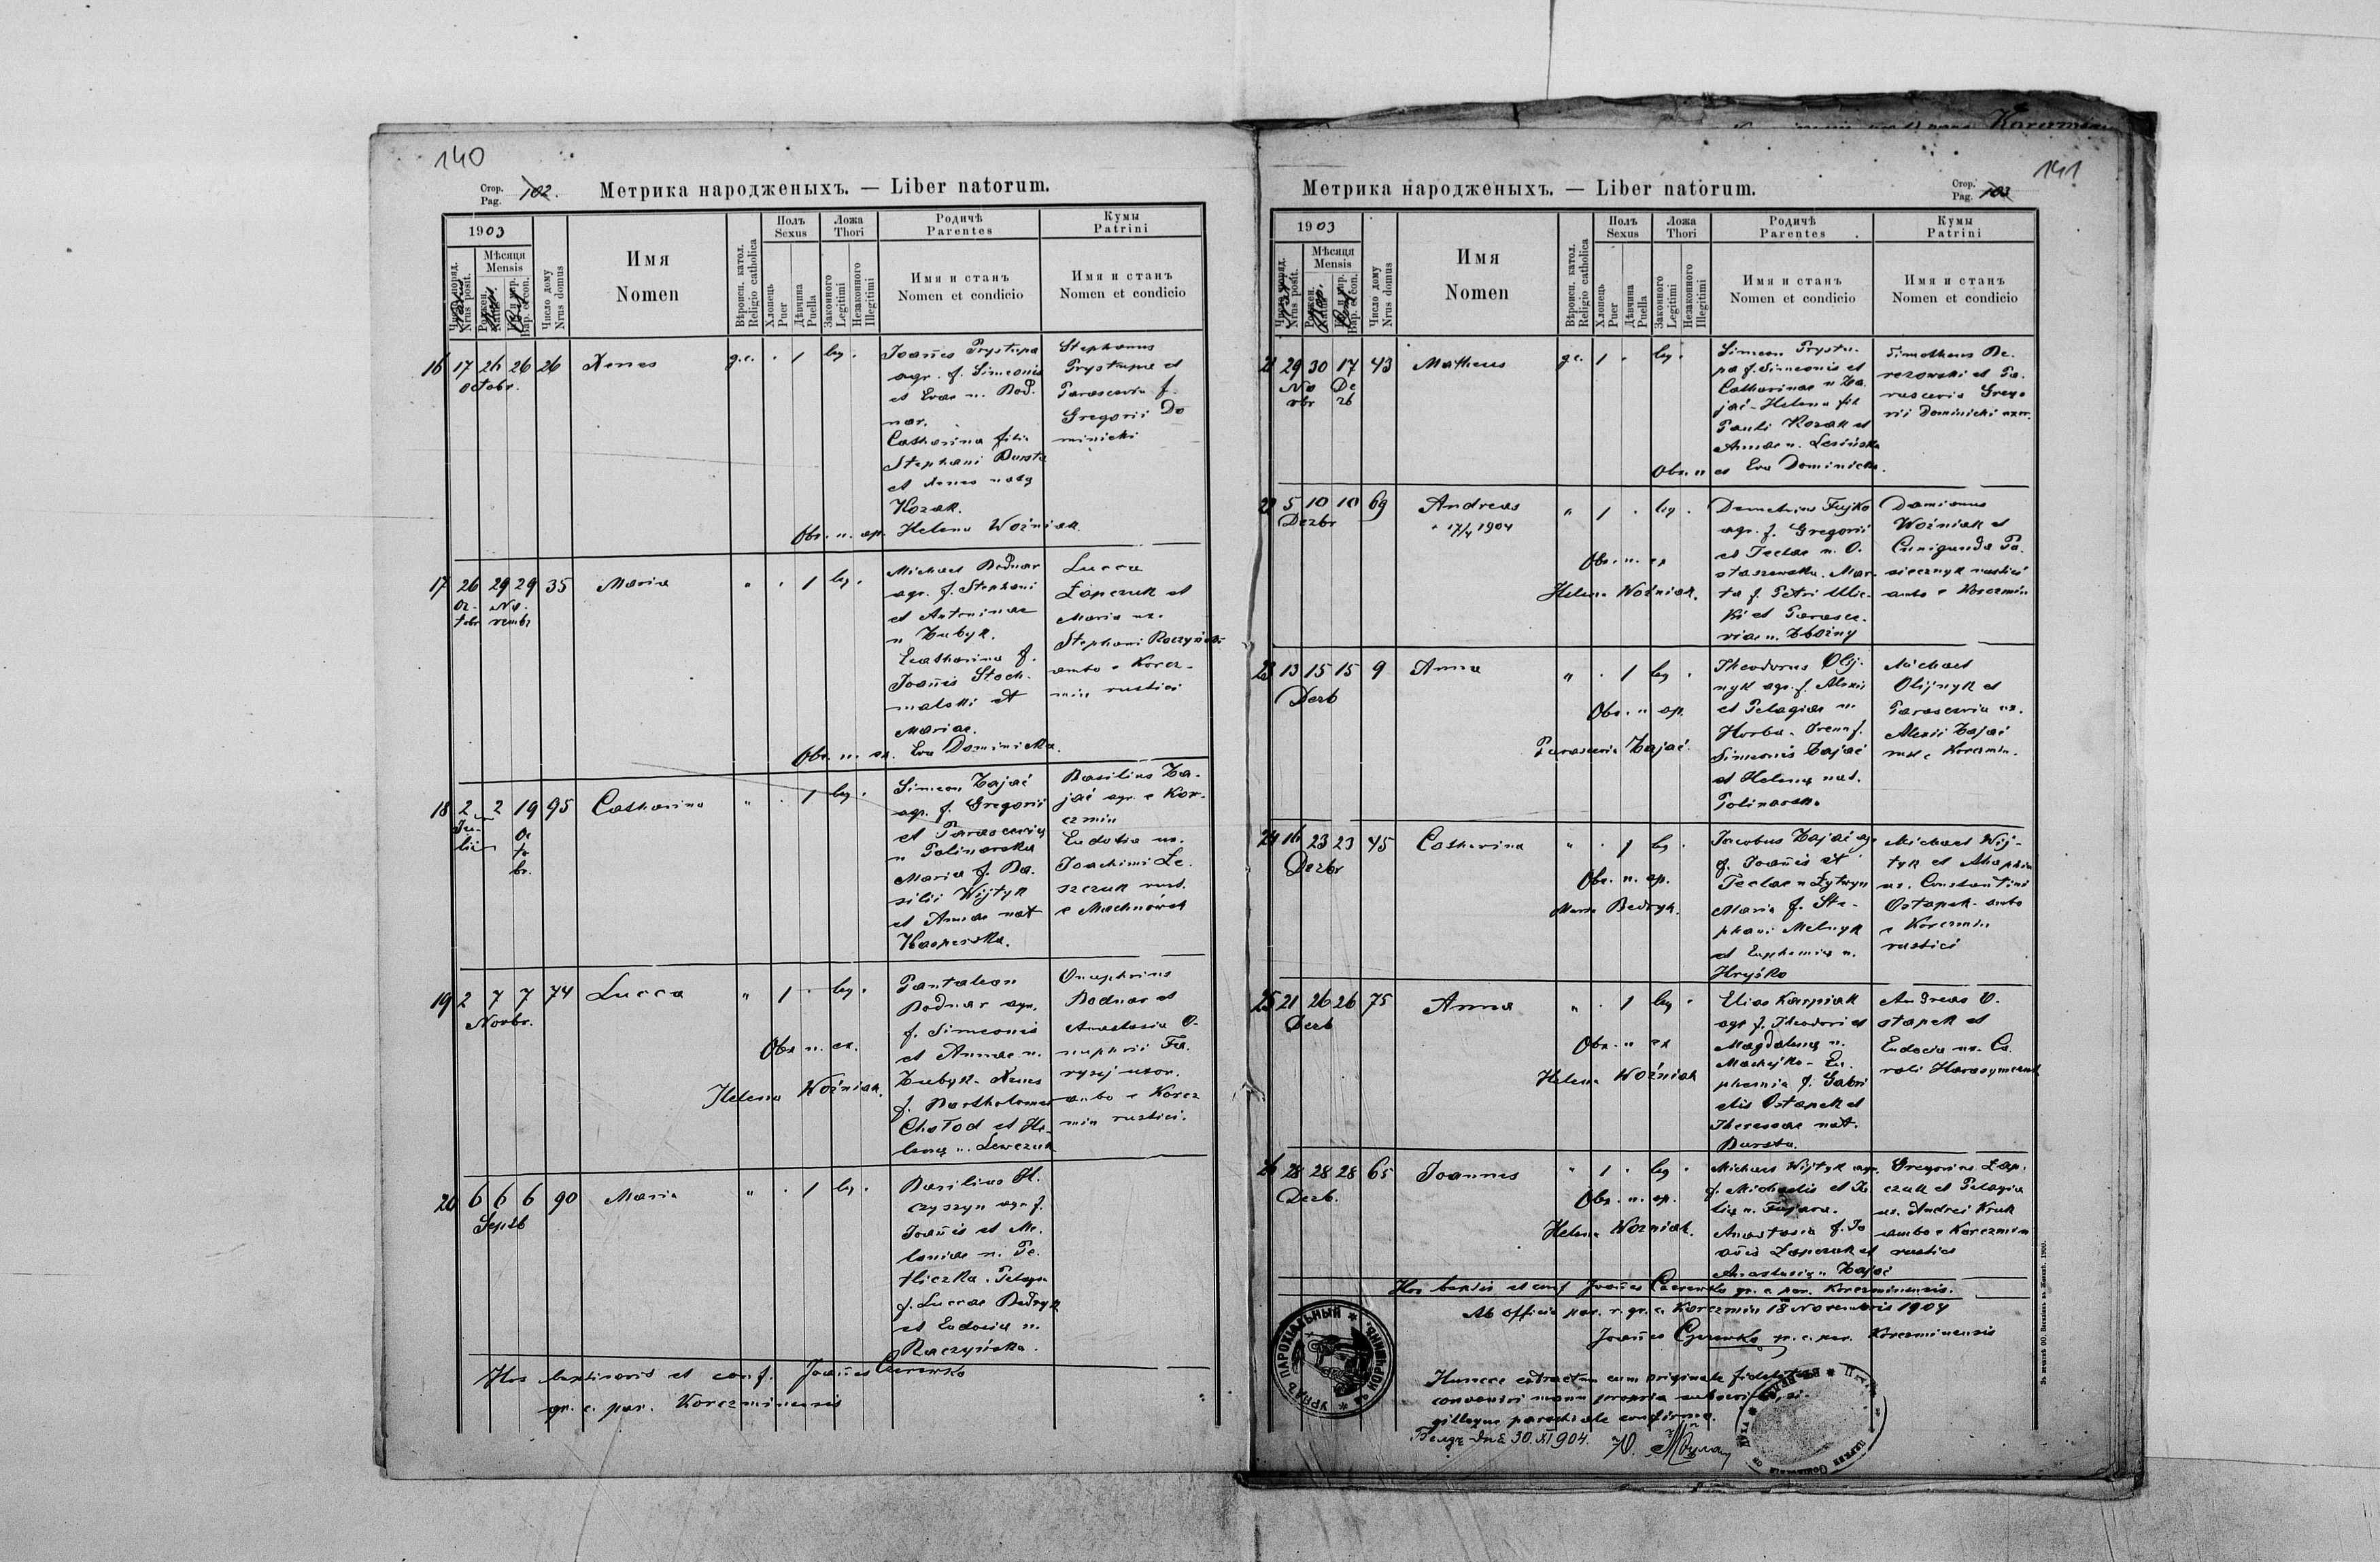 140
Стор.
Pag. 102.
Метрика народженыхъ. — Liber natorum.
1903
Мѣсяця
Mensis
Число дому
Nrus domus
Имя
Nomen
Вѣроисп. катол.
Religio catholica
Полъ
Sexus
Хлопець
Puer
Дѣвчина
Puella
Ложа
Thori
Законного
Legitimi
Незаконного
Illegitimi
Родичѣ
Parentes
Имя и станъ
Nomen et condicio
Кумы
Patrini
Имя и станъ
Nomen et condicio
16 17 26 26 26 Xenes g.c. . 1 leg.
Octobr.
Joan̄es Prystupa
agr. f. Simeonis
et Evae n. Bod.
nar.
Catharina filia
Stephani Bursta
et Xenes naty
Kozak.
Obs. n. ap. Helena Woźniak.
Stephanus
Prystupa et
Parascevia f.
Gregorii Do
minicki
17 26 29 29 35 Maria " . 1 leg.
Oc- No-
tobr vembr
Michael Bodnar
agr. f. Stephani
et Antoninae
n Zubyk.
Catharina f.
Joan̄is Stach-
malski et
Mariae.
Obs. n. ex. Eva Dominicka.
Lucca
Łapczuk et
Maria ux.
Stephani Raczyński
ambo e Korcz-
min rustici
18 2 2 19 95 Catharina " . 1 leg.
Ju- Oc
lii to
br.
Simeon Zajać
agr. f. Gregorii
et Parascevię
n Polinarska
Maria f. Ba-
silii Wijtyk
et Annae nat
Kasperska.
Basilius Za-
jać agr. e Kor-
czmin
Eudoxia ux.
Joachimi Le-
szczuk rust.
e Machnówek
19 2 7 7 74 Lucca " 1 . leg.
Novbr.
Pantaleon
Bodnar agr.
f. Simeonis
et Annae n.
Zubyk - Xenes
f. Bartholomei
Chołod et He-
lenę n. Lewczuk
Obs n. ex.
Helena Woźniak.
Onuphrius
Bodnar et
Anastasia O-
nuphrii Fa-
ryzej uxor.
ambo e Korcz
min rustici.
20 6 6 6 90 Maria " . 1 leg.
Septb
Basilius Il-
czyszyn agr f.
Joan̄is et Me-
laniae n. Pe-
tliczka. Pelagia
f. Luccae Bedryk
et Eudocię n.
Raczyńska.
Hos baptisavit et conf. Joan̄es Czerewko
gr. c. par. Korczminensis
141
Стор.
Pag. 103
Метрика народженыхъ. — Liber natorum.
1903
Мѣсяця
Mensis
Число дому
Nrus domus
Имя
Nomen
Вѣроисп. катол.
Religio catholica
Полъ
Sexus
Хлопець
Puer
Дѣвчина
Puella
Ложа
Thori
Законного
Legitimi
Незаконного
Illegitimi
Родичѣ
Parentes
Имя и станъ
Nomen et condicio
Кумы
Patrini
Имя и станъ
Nomen et condicio
21 29 30 17 43 Matheus gc. 1 . leg.
No De
vbr zb
Simeon Prystu-
pa f. Simeonis et
Catharinae n Za-
jać - Helena fil
Pauli Kozak et
Annae n. Lesińska
Obs. n et Eva Dominicka.
Timotheus Be-
rezowski et Pa-
rascevia Grego
rii Dominicki uxor.
22 5 10 10 69 Andreas " 1 . leg.
Dezbr
17/4 1904
Demetrius Fujko
agr. f. Gregorii
et Teclae n. O-
staszewska. Mar-
ta f. Petri Ulic-
ki et Parasce-
viae n. Zbożny
Obs. n. ex
Helena Woźniak.
Damianus
Woźniak et
Cunigunda Pa-
siecznyk rustici
ambo e Korczmin
23 13 15 15 9 Anna " . 1 leg.
Dezb
Theodorus Olij-
nyk agr. f. Alexii
et Pelagiae n.
Horba. Irena f.
Simeonis Zajać
et Helenę nat.
Polinarska
Obs. n ap.
Parascevia Zajać.
Michael
Olijnyk et
Parascevia ux.
Alexii Zajać
rust e Korczmin.
24 16 23 23 45 Catharina " . 1 leg.
Dezbr
Jacobus Zajać agr
f. Joan̄is et
Teclae n Łytwyn
Maria f. Ste-
phani Melnyk
et Euphemię n.
Hryśko
Obs. n. ap.
Maria Bedryk.
Michael Wij-
tyk et Ahaphia
ux. Constantini
Ostapek - ambo
e Korczmin
rustici
25 21 26 26 75 Anna " . 1 leg.
Dezb
Elias Karpiak
agr f. Theodori et
Magdalenę n.
Machejko - Eu-
phemia f. Gabri
elis Ostapek et
Theresae nat.
Bursta.
Obs. n ex
Helena Woźniak
Andreas O-
stapek et
Eudocia ux. Ca-
roli Harasymczuk
26 28 28 28 65 Joannes " 1 . leg.
Dezb.
Michael Wijtyk agr.
f. Michaelis et Ju
lię n. Fujara.
Anastasia f. Jo
an̄is Łapczuk et
Anastasię n Zajać
Obs. n. ap.
Helena Woźniak.
Gregorius Łap-
czuk et Pelagia
ux. Andrei Kruk
ambo e Korczmin
rustici
Hos baptis et conf Joan̄es Czerewko gr. c. par. Korczminensis.
Ab officio par. r. gr. c. Korczmin 18 Novembris 1904
Joan̄es Czerewko gr. c. par. Korczminensis
Huncce extractum cum originale fideliter
convenire manu propria subscribo, si-
gilloque parochiale confirmo.
Белзъ дня 30. XI 904.